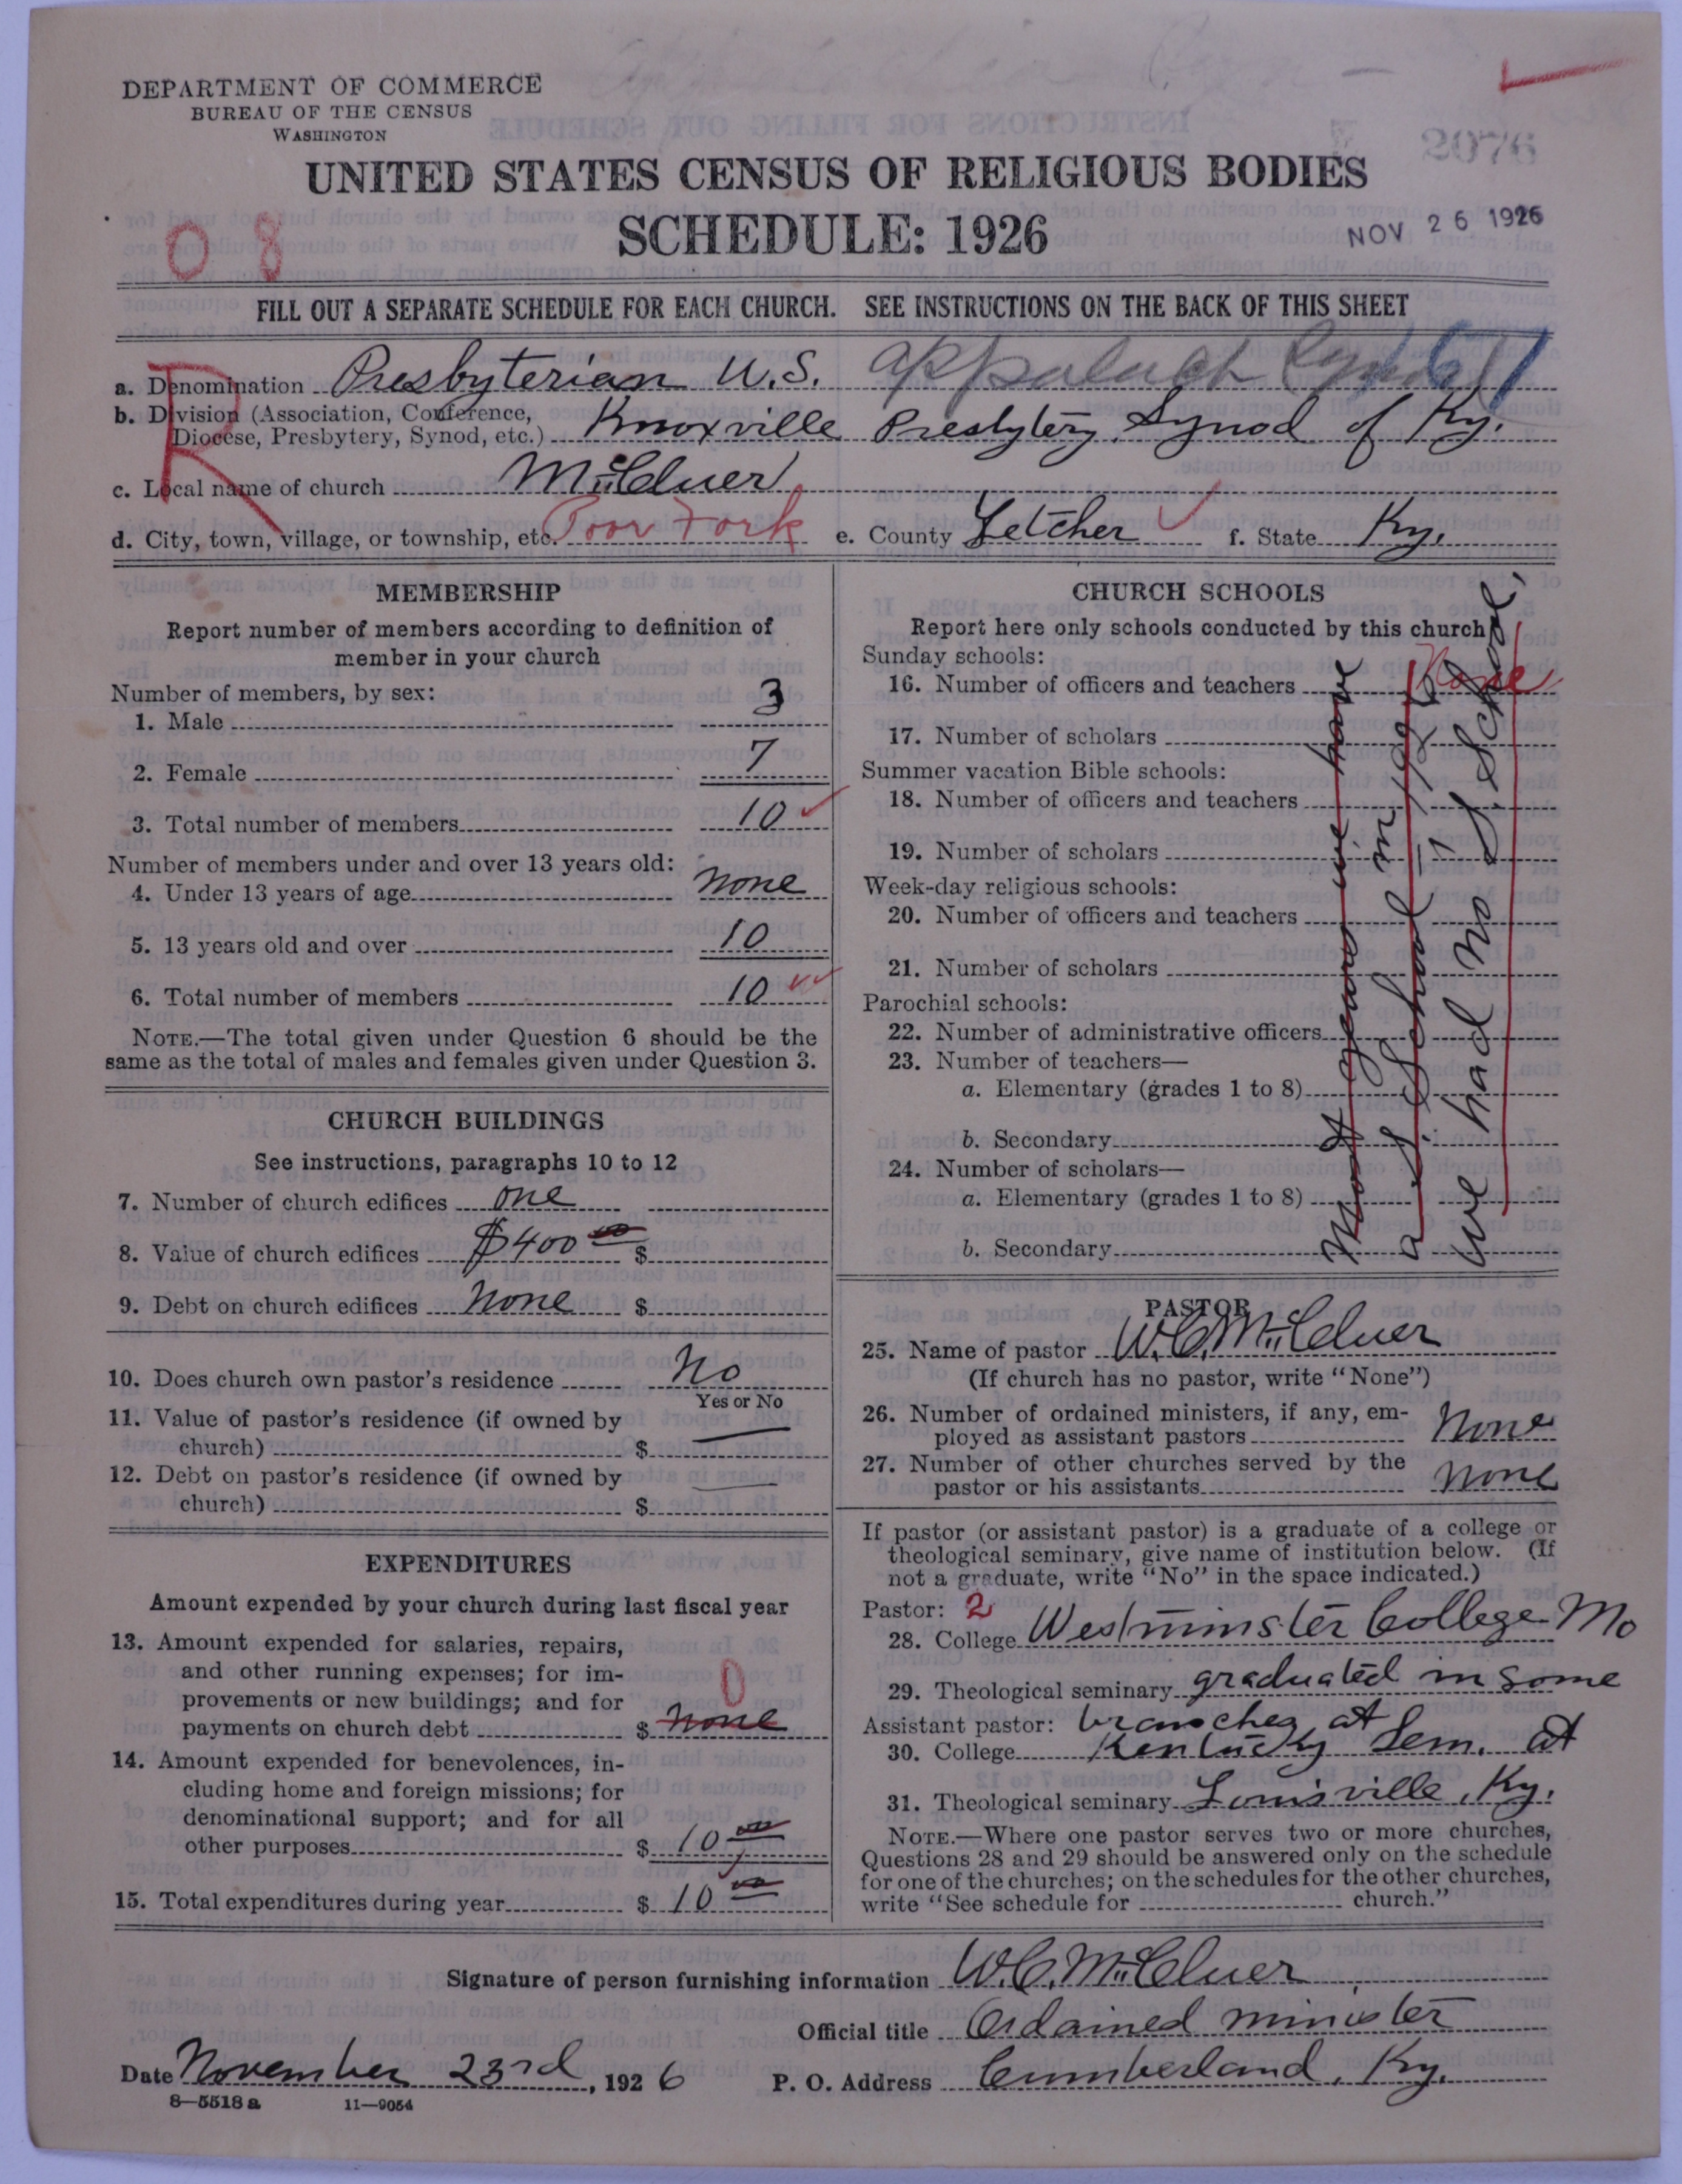 DEPARTMENT OF COMMERCE
BUREAU OF THE CENSUS
WASHINGTON
2076
UNITED STATES CENSUS OF RELIGIOUS BODIES
SCHEDULE: 1926
NOV 26 1926
0 8
FILL OUT A SEPARATE SCHEDULE FOR EACH CHURCH. SEE INSTRUCTIONS ON THE BACK OF THIS SHEET
R
a. Denomination Presbyterian U.S. Appalach
b. Division (Association, Conference,
Diocese, Presbytery, Synod, etc.) Knoxville Presbytery, Synod of Ky.
c. Local name of church McCluer
d. City, town, village, or township, etc. Poor Fork e. County Letcher f. State Ky.
MEMBERSHIP
Report number of members according to definition of
member in your church
Number of members, by sex:
1. Male 3
2. Female 7
3. Total number of members 10
Number of members under and over 13 years old:
4. Under 13 years of age none
5. 13 years old and over 10
6. Total number of members 10
NOTE.—The total given under Question 6 should be the
same as the total of males and females given under Question 3.
CHURCH BUILDINGS
See instructions, paragraphs 10 to 12
7. Number of church edifices one
8. Value of church edifices $400 00 $
9. Debt on church edifices None $
10. Does church own pastor's residence No
Yes or No
11. Value of pastor's residence (if owned by
church) $
12. Debt on pastor's residence (if owned by
church) $
EXPENDITURES
Amount expended by your church during last fiscal year
13. Amount expended for salaries, repairs,
and other running expenses; for im-
provements or new buildings; and for 0
payments on church debt $ none
14. Amount expended for benevolences, in-
cluding home and foreign missions; for
denominational support; and for all
other purposes $ 10 00
15. Total expenditures during year $ 10 00
CHURCH SCHOOLS
Report here only schools conducted by this church
Sunday schools:
16. Number of officers and teachers None
17. Number of scholars
Summer vacation Bible schools:
18. Number of officers and teachers
19. Number of scholars
Week-day religious schools:
20. Number of officers and teachers
21. Number of scholars
Parochial schools:
22. Number of administrative officers
23. Number of teachers—
a. Elementary (grades 1 to 8)
b. Secondary
24. Number of scholars—
a. Elementary (grades 1 to 8)
b. Secondary
Most years we have
a S. School in 1926
we had no S. School,
PASTOR
25. Name of pastor W.C. McCluer
(If church has no pastor, write "None")
26. Number of ordained ministers, if any, em-
ployed as assistant pastors None
27. Number of other churches served by the
pastor or his assistants None
If pastor (or assistant pastor) is a graduate of a college or
theological seminary, give name of institution below. (If
not a graduate, write "No" in the space indicated.)
Pastor: 2
28. College Westminster College Mo
29. Theological seminary graduated in some
Assistant pastor: branches at
30. College Kentucky Sem. at
31. Theological seminary Louisville, Ky.
NOTE.—Where one pastor serves two or more churches,
Questions 28 and 29 should be answered only on the schedule
for one of the churches; on the schedules for the other churches,
write "See schedule for church."
Signature of person furnishing information W.C. McCluer
Official title Ordained minister
Date November 23rd, 1926 P. O. Address Cumberland, Ky.
8—5518 a 11—9054